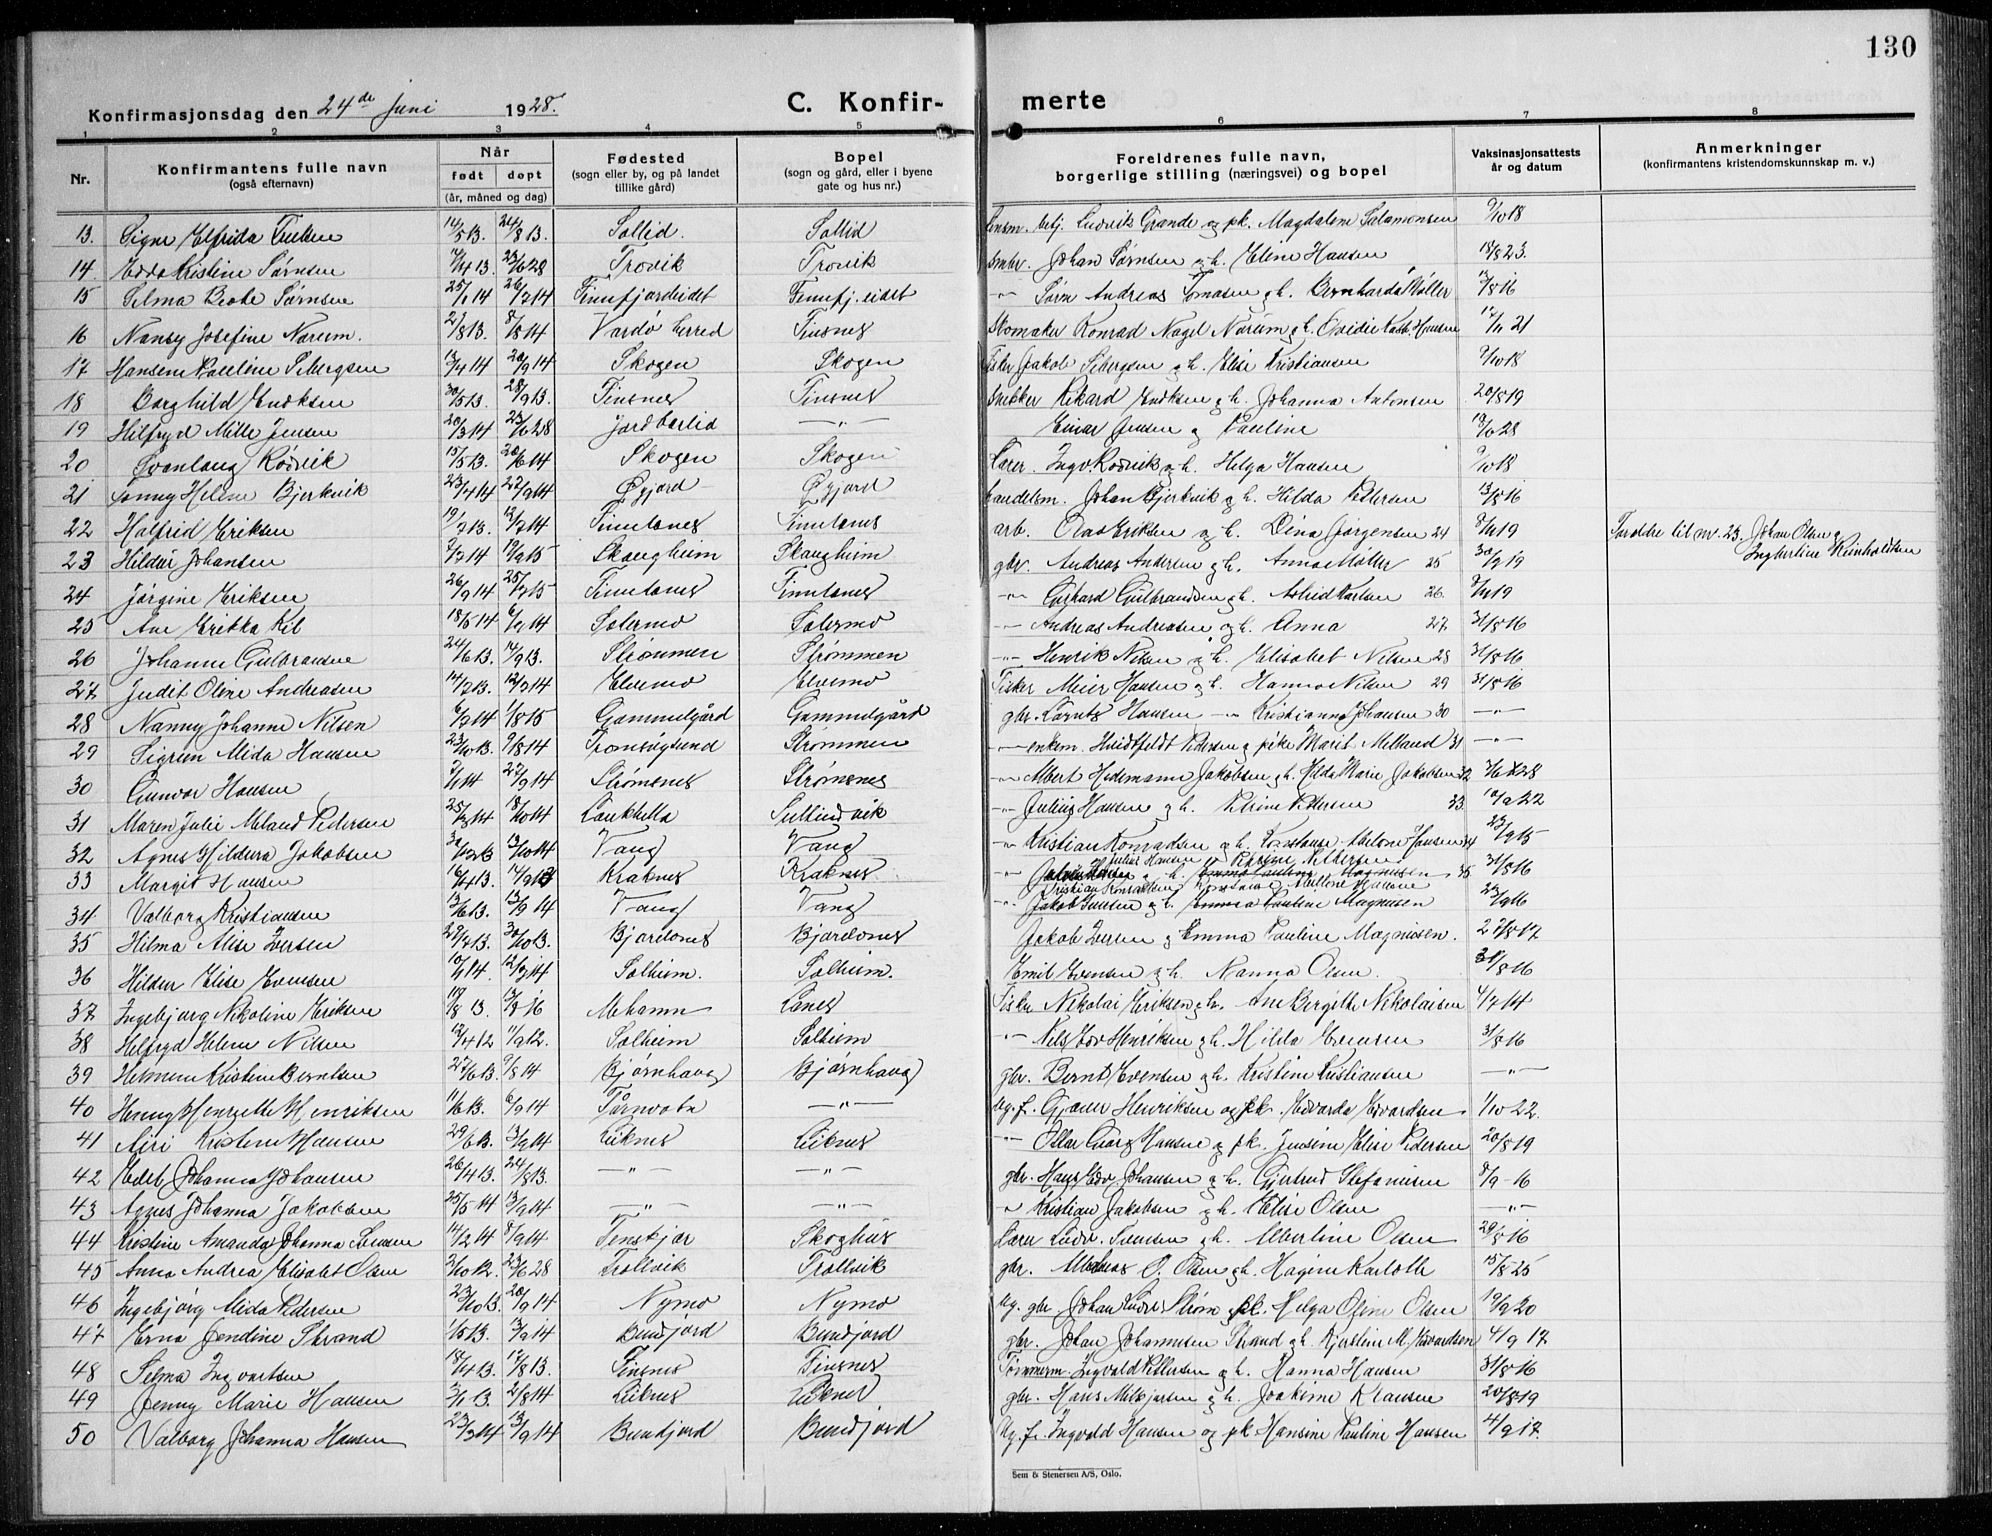 130
Konfirmasjonsdag den 24de Juni 1928.
C. Konfir-
merte
1 2 3 4 5 6 7 8
Nr.
Konfirmantens fulle navn
(også efternavn)
Når
født døpt
(år, måned og dag)
Fødested
(sogn eller by, og på landet
tillike gård)
Bopel
(sogn og gård, eller i byene
gate og hus nr.)
Foreldrenes fulle navn,
borgerlige stilling (næringsvei) og bopel
Vaksinasjonsattests
år og datum
Anmerkninger
(konfirmantens kristendomskunnskap m. v.)
13. Signe Elfrida 14/5 13. 24/8 13. Sollid. Sollid Ludvik Grande og pk. Magdalene Salamonsen 9/10 18
14. Edda Kristine Sørnsen 23/6 28 Trovik Trovik Johan Sørnsen g h. Eline Hansen 18/8 23.
15 Selma Beate Sørnsen 25/1 14 26/7 14 Finnfjordeidet Finnfj. eidet -"- Sørn Andreas Tomasen g h. Bernharda Møller 13/8 16
16 Nansy Josefine Narum. 27/8 13. 8/8 14 Vardø Herred Finsnes Skomaker Konrad Nagel Narum g h. Ovidie Kath. Hansen 17/11 21
17 Hansine Pauline Sebergsen 13/4 14 20/9 14 Skogen Skogen Fisker Jakob Sebergsen g h. Elise Kristiansen 9/10 18
18 Borghild Eriksen 30/5 13. 28/9 13. Finsnes Finsnes Snekker Rikard Eriksen g h. Johanna Antonsen 20/8 19
19 Hilfryd Mille Jensen 20/3 14 23/6 28 Jordbærlid -"- Einar Jensen g Pauline 19/6 28
20 Svanlaug Rødvik 15/5 13. 20/6 14 Skogen Skogen Lærer. Ingv. Rødvik g h. Helga Hansen 9/10 18
21 Jenny Helene Bjerkvik 23/4 14 27/9 14 Øyjord Øyjord handelsm. Johan Bjerkvik g h. Hilda Petersen 13/8 16
22 Halfrid Eriksen 19/7 13. 12/7 14 Finnlanes Finnlanes arb. Olas Eriksen g h. Dina Jørgensen 24 8/11 19 Foreldre til nr. 23. Johan Olsen g
23 Hildur Johansen 7/7 14 19/9 15 Skaugheim Skaugheim gbr. Andreas Andersen g h. Anna Møller 25 30/9 19 Ingbertine Reinholdtsen
24 Jørgine Eriksen 26/9 14 25/7 15 Finnlanes Finnlanes -"- Gerhard Gulbrandsen g h. Astrid Karlsen 26. 8/11 19
25 Ane Erikka Kil 18/5 14 6/9 14 Solermo Solermo -"- Andreas Andreasen g h. Anna 27 31/8 16
26 Johanne Gulbransen 24/6 13. 14/9 13. Strømmen Strømmen -"- Henrik Nilsen g h. Elisabet Nilsen 28 31/8 16
27 Judit Oline Andreasen 14/7 13. 12/7 14 Elvemo Elvemo Fisker Meier Hansen g h. Hanna Nilsen 29 31/8 16
28 Nanny Johanne Nilsen 6/9 14 1/8 15 Gammelgård Gammelgård gbr. Lornts Hansen -"- Kristianna Johansen 30 -"-
29 Sigrun Alida Hansen 23/10 13. 9/8 14 Tromsøysund Strømmen -"- enkem. Hvidtfeldt Pedersen g pike Marit Meland 31 -"-
30 Gunvor Hansen 7/1 14 27/9 14 Strømsnes Strømsnes -"- Albert Hedemann Jakobsen g h. Hilda Marie Jakobsen 32 4/6 28
31 Maren Julie Meland Pedersen 25/3 14 18/10 14 Laukhella -"- Julius Hansen g h. Petrine Pedersen 33 10/9 22
32 Agnes Hildura Jakobsen 13/10 14 Vang Vang -"- Kristian Konradsen g h. Konstanse Abelone Hansen 34 23/9 15
33 Margit Hansen 16/4 13. 14/9 13 Kraknes Kraknes Julius Hansen g Petrine Pettersen 31/8 16
34 Valborg Kristiansen 13/6 13. 13/9 14 Vang Vang Kristian Konradsen Konstanse Abellone Hansen 23/9 16
35 Hilma Alise Iversen 29/7 13. 30/10 13. Bjordones Bjordones Jakob Iversen g Emma Pauline Magnusen. 27/8 17
36 Hildur Elise Evensen 10/1 14. 12/7 14 Solheim. Solheim. Emil Evensen g h. Nanna Olsen. 31/8 16
37 Ingebjørg Nikoline Eriksen 19/8 13. 13/8 16 Mehamn Lånes Fisker Nikolai Eriksen g h. Ane Bergitte Nikolaisen 4/7 14
38 Helfryd Helene Nilsen 19/4 12 11/9 12. Solheim Solheim -"- Nels Edv Henriksen g h. Hilda Evensen 31/8 16
39 Helmine Kristine Berntsen 27/6 13. 9/8 14 Bjørnhaug Bjørnhaug gbr. Bernt Evensen g h. Kristine Kristiansen -"-
40 Henny Henrette Henriksen 11/6 13. 6/9 14 Tårnvatn -"- Ug. f. Gjæver Henriksen og pk. Edvarda Edvardsen 1/10 22.
41 Airi Kristine Hansen 29/6 13. 13/9 14 Leiknes Leiknes -"- Ottar Georg Hansen g pk. Jensine Elise Pedersen 20/8 19
42 Edel Johanna Johansen 26/4 13. 24/8 13. -"- -"- gbr. Hans Edv Johansen g h. Gjertrud Stefanusen 8/9 -16
43 Agnes Johanna Jakobsen 25/5 14 13/9 14 -"- -"- " Kristian Jakobsen g h. Elise Olsen -"-
44 Kristine Amanda Johanna 14/2 14 8/9 14 Finskjær Skoghus Lærer g h. Albertine Olsen 29/8 16
45 Anna Andrea Elisabet Olsen 7/10 12. 23/6 28 Trollvik Trollvik gbr. O. Olsen g h. Hagine Karlotte 15/8 25
46 Ingebjørg Alida Pedersen 23/10 13. 20/9 14 Nymo Nymo Ug. gbr. Johan Ludv. Strøm g pk. Helga Oline Olsen 19/9 20
47 Erna Jendine Strand 1/5 13. 13/9 14 Bundjord Bundjord gbr. Johan Johannesen Strand g h. Kjerstine M. Edvardsen 4/9 17
48 Selma Ingvartsen 18/4 13. 17/8 13. Finsnes Finsnes Tømmerm. Ingvald Pettersen g h. Hanna Hansen 31/8 16
49 Jenny Marie Hansen 3/1 13. 2/8 14 Leiknes Leiknes gbr. Hans g h. Joakime Klausen 20/8 19
50 Valborg Johanna Hansen 23/3 14 13/9 14 Bundjord Bundjord Ug. f. Ingvald Hansen og pk Hansine Pauline Hansen 4/9 17.
Sem & Stenersen A/S, Oslo.